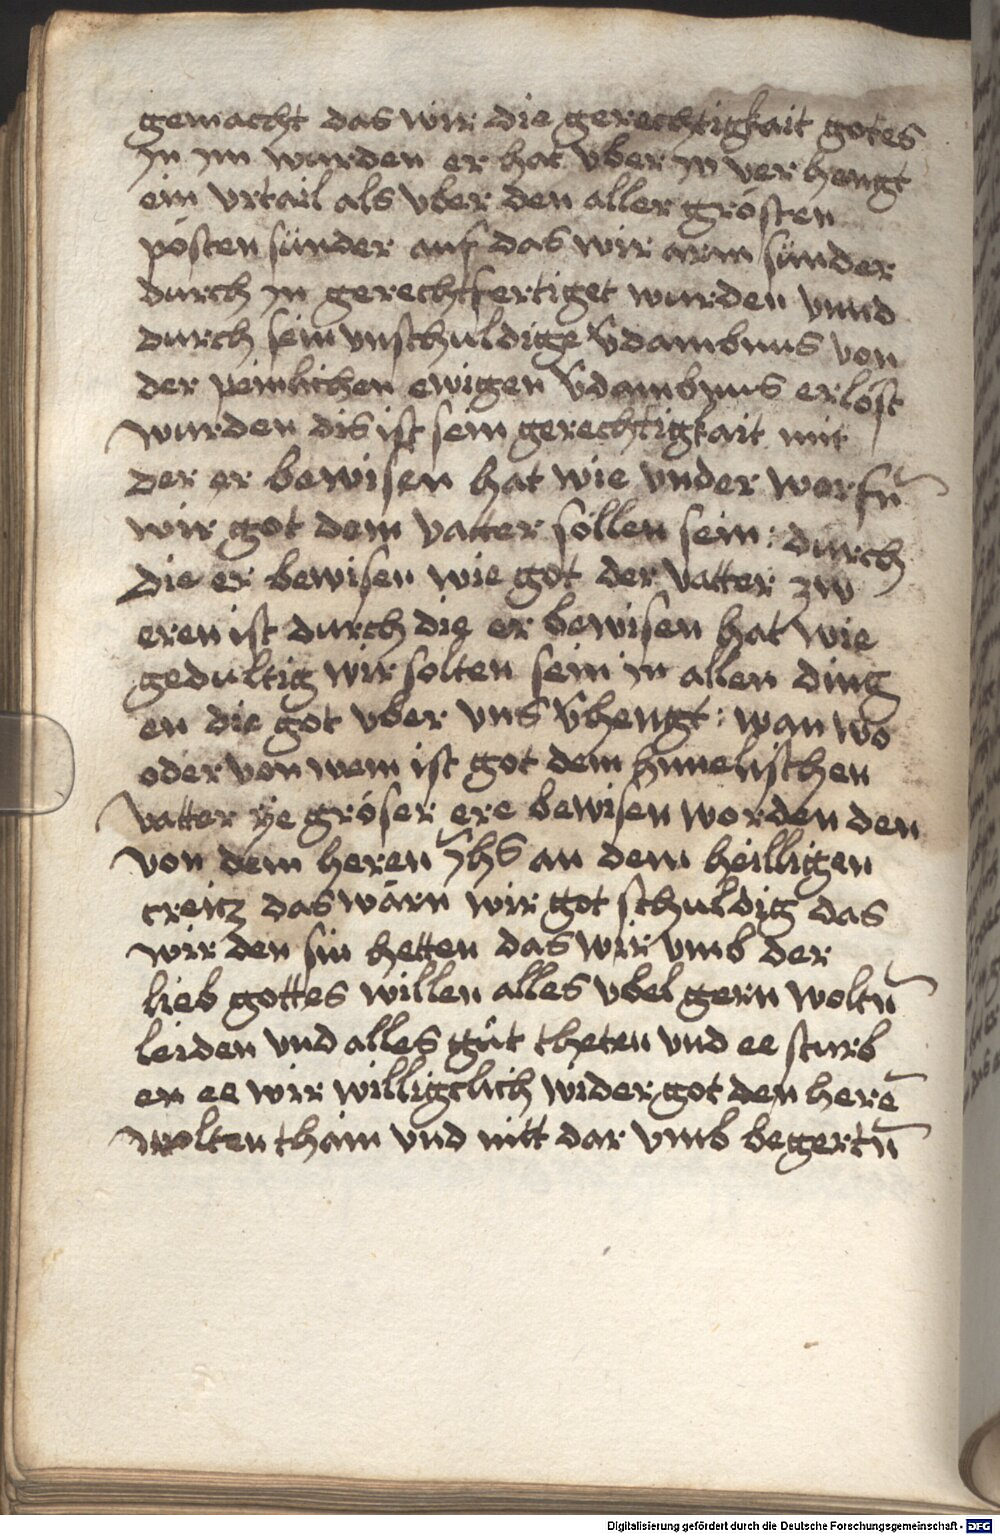 gemacht das wir die gerechtigkait gotes
jn jm wurden er hat vber jn ver hengt
ein vrtail als vber den aller grósten
pósten sünder auf das wir arm sünder
durch jn gerechtfertiget wurden vnnd
durch sein vnschuldige v̄dambnus von
der peinlichen ewigen v̄dambnus erlóst
wurden dis ist sein gerechtigkait mit
der er bewisen hat wie vnder worfn̄
wir got dem vatter sóllen sein : durch
die er bewisen wie got der vatter zw
eren ist durch die er bewisen hat wie
gedultig wir solten sein in allen ding
en die got vber vns v̄hengt : wan wo
oder von wem ist got dem himelischen
vatter ye gróser ere bewisen worden den
von dem heren Jh̄s an dem heilligen
creitz das wärn wir got schuldig das
wir den sin hetten das wir vmb der
lieb gottes willen alles vbel gern woltn̄
leiden vnd alles gůt theten vnd ee sturb
en ee wir willigclich wider got den herē
wolten thain vnd nitt dar vmb begertn̄
Digitalisierung gefördert durch die Deutsche Forschungsgemeinschaft - DFG